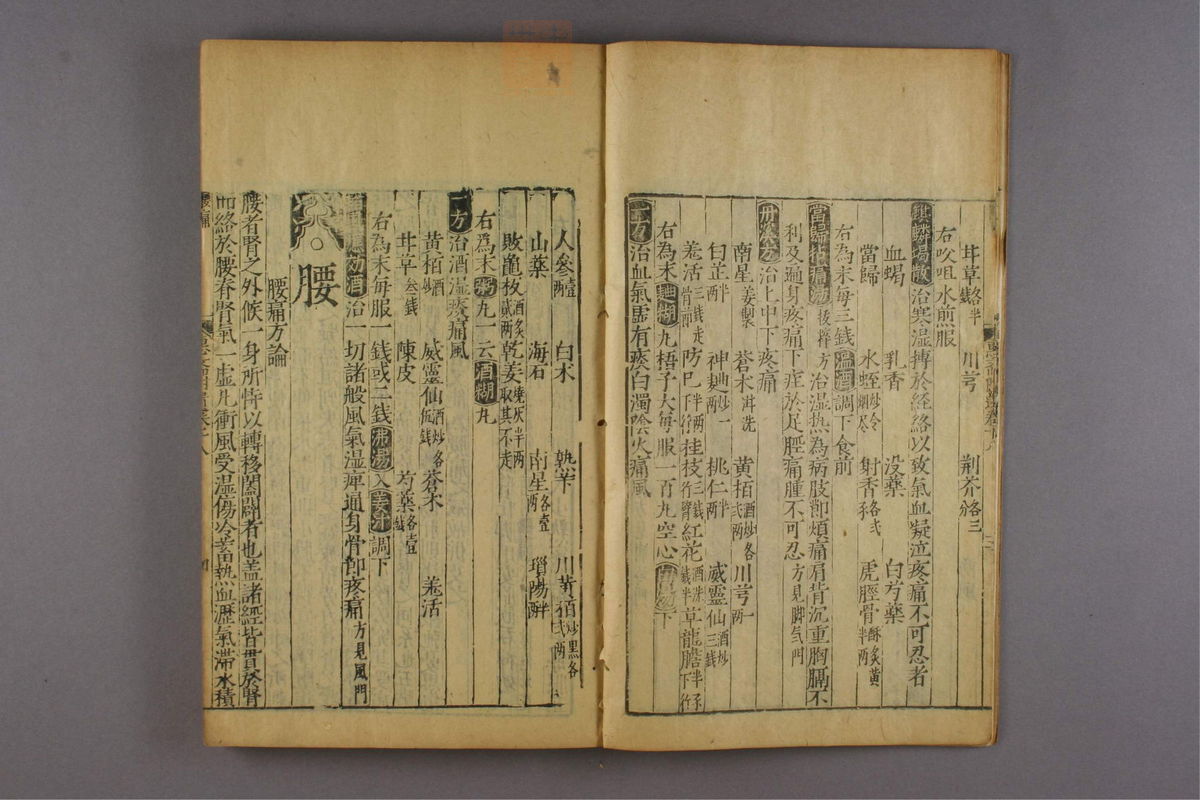 甘草各一錢半　川芎　荊芥各三分
右㕮咀水煎服
麒麟竭散治寒湿搏於経絡以致氣血凝泣疼痛不可忍者
血蝎　乳香　没藥　白芍藥
當歸　水蛭炒令烟尽　射香各弐　虎脛骨酥炙黄半両
右為末每三錢溫酒調下食前
當歸拈痛湯後稡方治湿热為病肢節煩痛肩背沉重胸膈不
利及遍身疼痛下疰於足脛痛腫不可忍方見脚気門
丹溪方治上中下疼痛
南星姜製　蒼朮泔洗　黃栢酒炒各弐両　川芎一両
白芷半両　神麯炒一両　桃仁半両　威靈仙酒炒三錢
羌活三錢走骨節　防已下行半両　桂枝三錢行臂　紅花酒洗錢半　草龍膽下行半錢
右為末麯糊丸梧子大每服一百丸空心白湯下
一方治血氣虛有痰白濁陰火痛風
人參一両　白朮　熟芐　川黃栢炒黑各弐両
山藥　海石　南星各壹両　瑣陽半両
敗亀板酒炙貳両　乾姜燒灰半両取其不走
右為末粥丸一云酒糊丸
一方治酒湿痰痛風
黃栢酒炒　威靈仙酒炒各伍錢　蒼朮　羌活
甘草叁錢　陳皮　芍藥各壹錢
右為末每服一錢或二錢沸湯入姜汁調下
効酒治一切諸般風氣湿痺通身骨節疼痛方見風門
腰
腰痛方論
腰者腎之外候一身所恃以轉移闔闢者也盖諸經皆貫於腎
而絡於腰脊腎氣一虛凡衝風受湿傷冷蓄热血瀝氣滯水積
腰痛